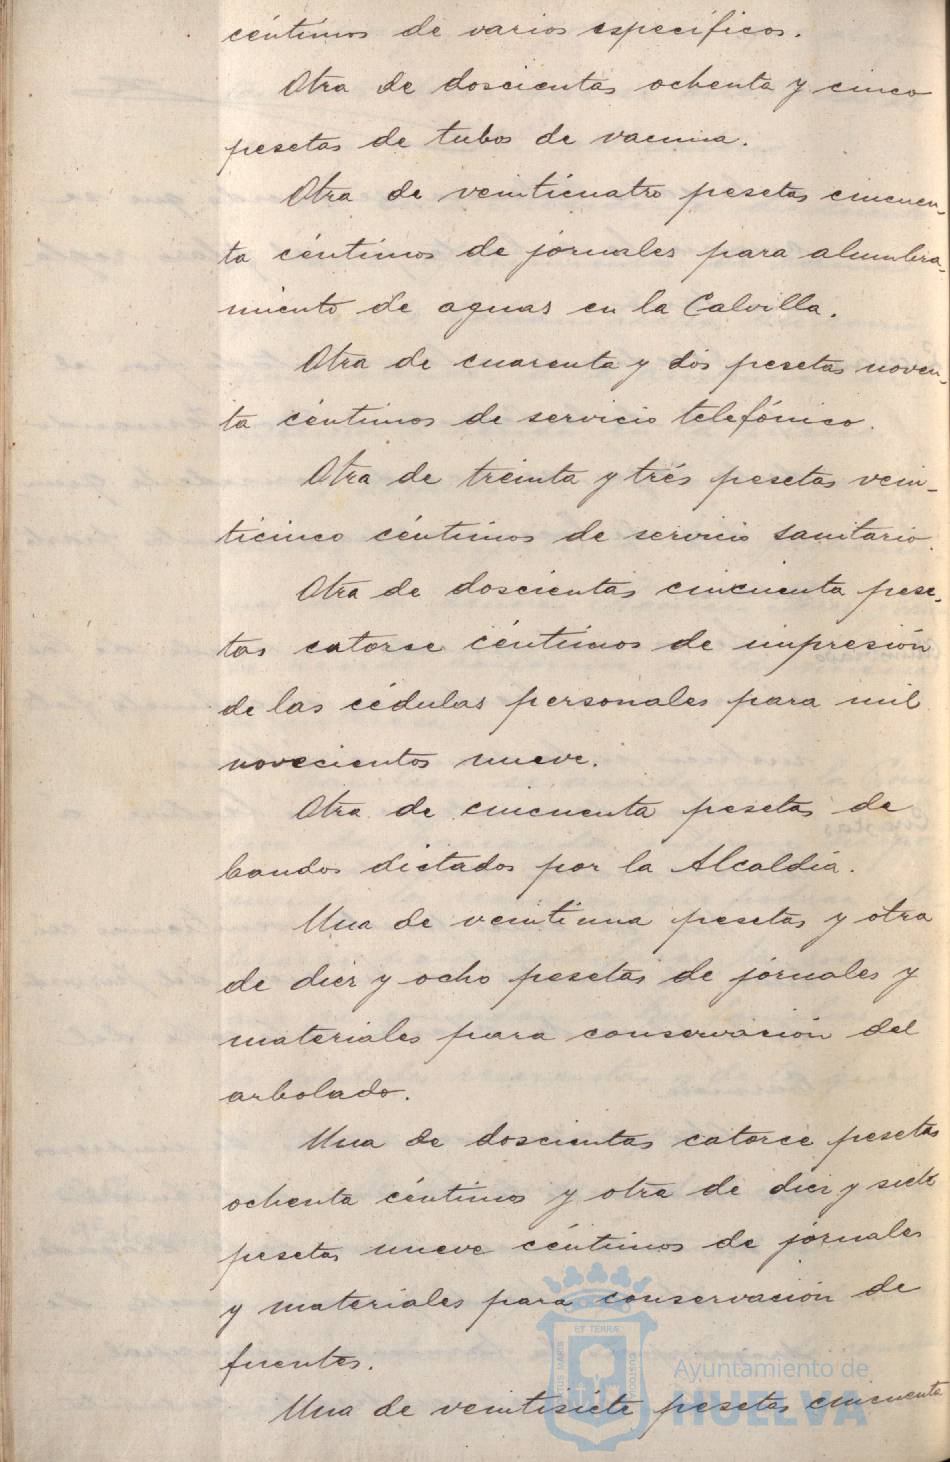 céntimos de varios específicos.
Otra de doscientas ochenta y cinco
pesetas de tubos de vacuna.
Otra de veinticuatro pesetas cincuen-
ta céntimos de jornales para alumbra-
miento de aguas en la Calvilla.
Otra de cuarenta y dós pesetas noven-
ta céntimos de servicio telefónico.
Otra de treinta y trés pesetas vein-
ticinco céntimos de servicio sanitario.
Otra de doscientas cincuenta pese-
tas catorse céntimos de impresión
de las cédulas personales para mil
novecientos nueve.
Otra de cincuenta pesetas de
bandos dictados por la Alcaldía.
Una de veintiuna pesetas y otra
de diez y ocho pesetas de jornales y
materiales para conservación del
arbolado.
Una de doscientas catorce pesetas
ochenta céntimos y otra de diez y siete
pesetas nueve céntimos de jornales
y materiales para conservación de
fuentes.
Una de veintisiete pesetas cincuenta
ET TERRÆ
PORTUS MARIS
CUSTODIA
Ayuntamiento de
HUELVA